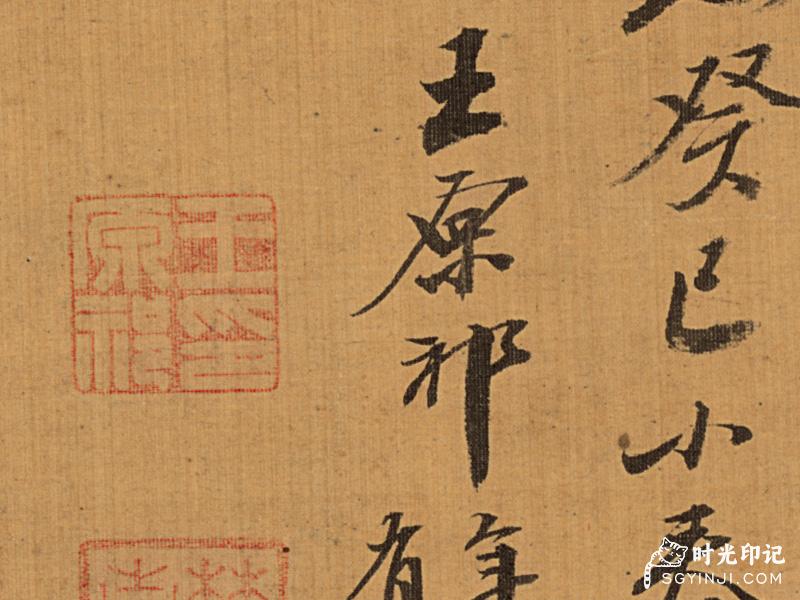 癸巳小春
王原祁
年
有
时光印记
SGYINJI.COM